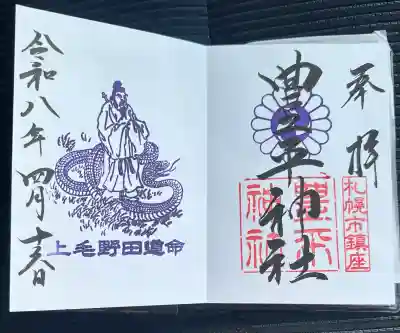 奉拝
札幌市鎮座
豊平神社
豊平
神社
上毛野田道命
令和八年四月